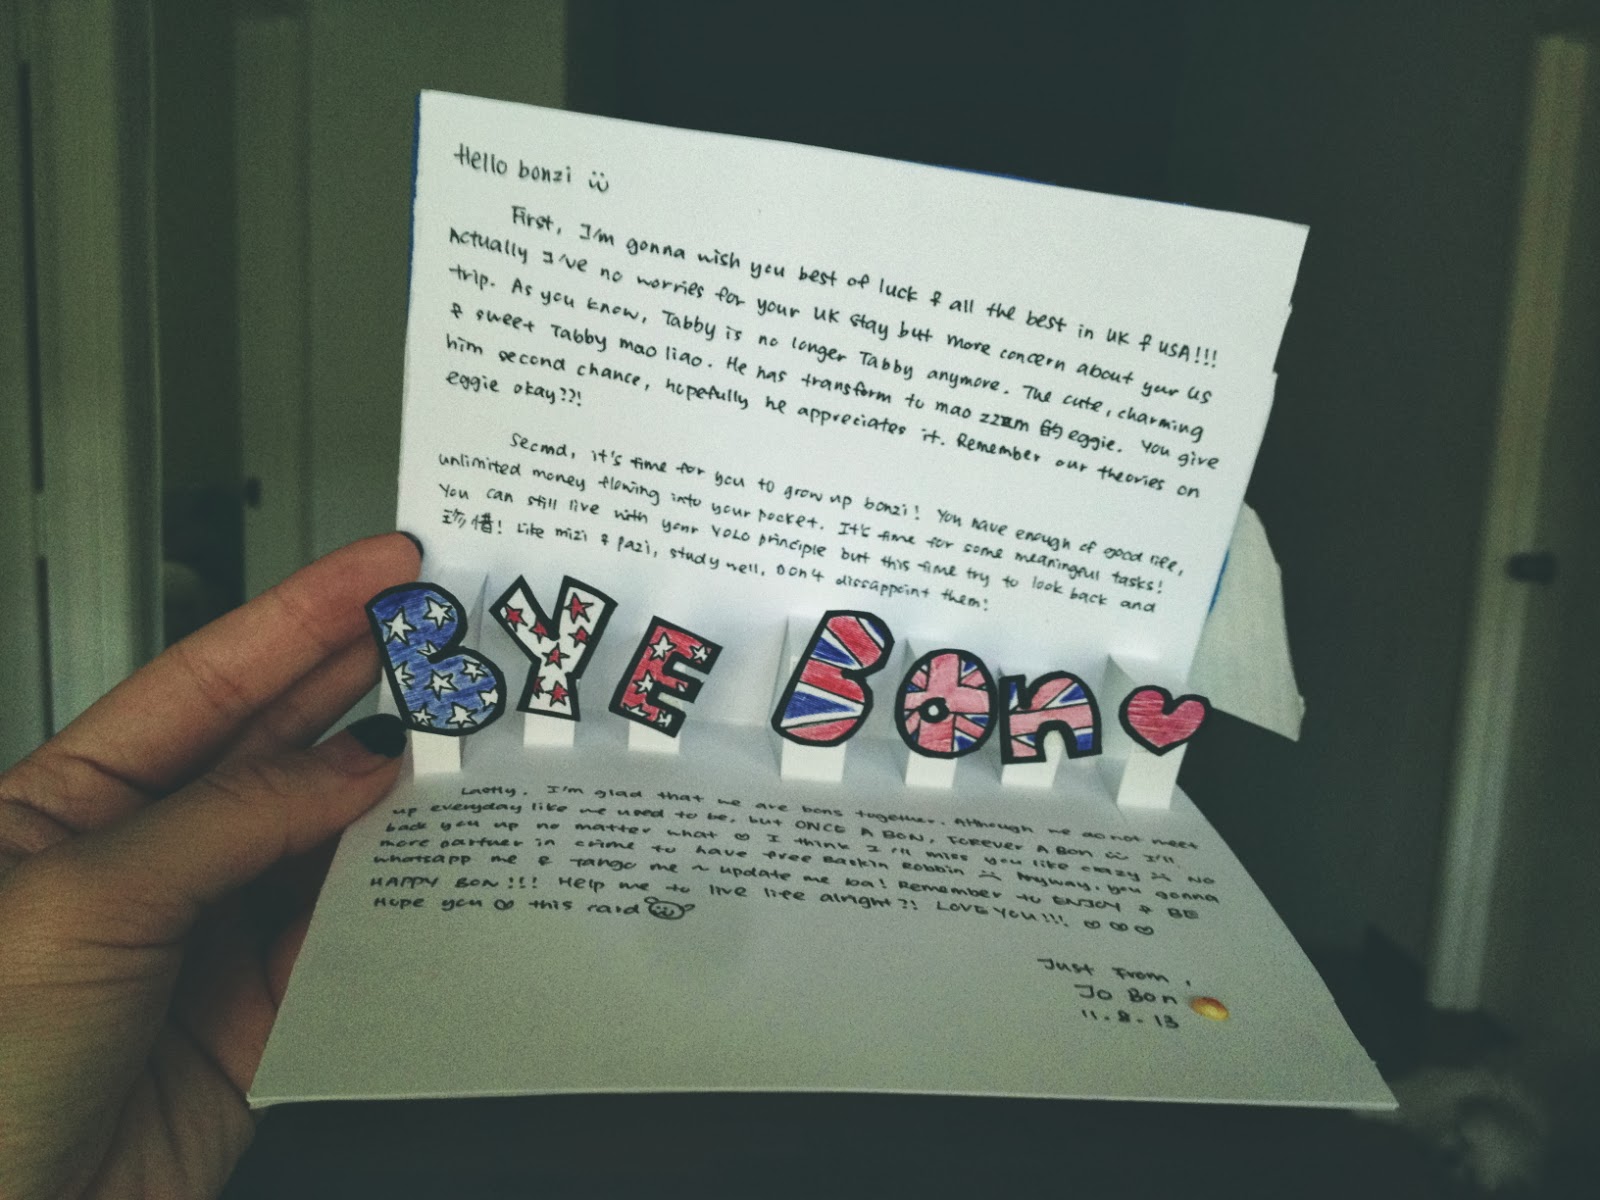 Hello bonzi
First, I'm gonna wish you best of luck & all the best in UK & USA!!!
Actually I've no worries for your UK stay but more concern about your US
trip. As you know, Tabby is no longer Tabby anymore. The cute, charming
& sweet Tabby mao liao. He has transform to mao 的 eggie. You give
him second chance, hopefully he appreciates it. Remember our theories on
eggie okay??!
Second, it's time for you to grow up bonzi! You have enough of good life,
unlimited money flowing into your pocket. It's time for some meaningful tasks!
You can still live with your YOLO principle but this time try to look back and
珍惜! Like mizi & pazi, study well, Don't dissappoint them!
BYE Bon
Lastly, I'm glad that we are bons together. Although we do not meet
up everyday like we used to be, but ONCE A BON, FOREVER A BON I'll
back you up no matter what I think I'll miss you like crazy No
more partner in crime to have free Baskin Robbin Anyway, you gonna
whatsapp me & tango me ~ update me ba! Remember to ENJOY & BE
HAPPY BON!!! Help me to live life alright?! LOVE YOU!!!
Hope you ♡ this card
Just From,
Jo Bon
11.8.13